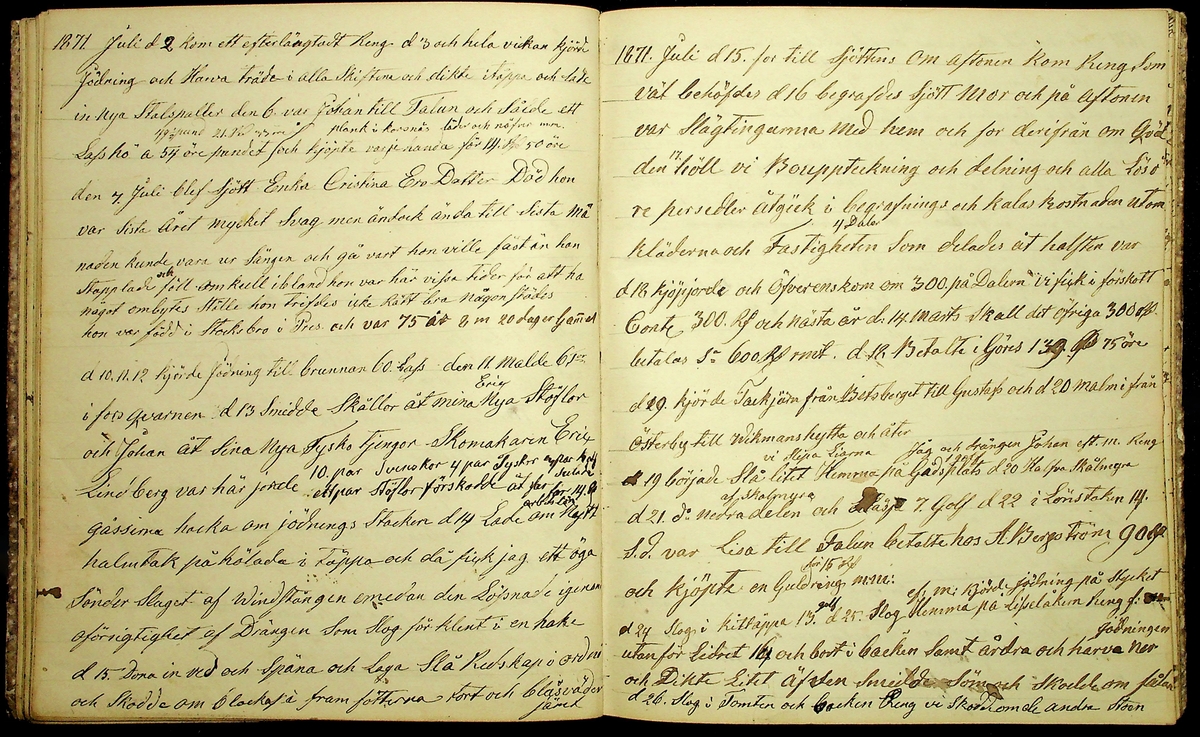 1871 Juli d 2 kom ett efterlängtadt Reng d 3 och hela vickan kjörde
Jödning och Harva träde i alla Skiftena och dikte i täppa och lade
in nya den 6. var Johan till Falun och sålde ett
49 pund 21. plank i korsnäs läder och näfver mm.
Lass Hö a 54 öre pundet och kjöpte för 14. Rd 50 öre
den 7 Juli blef Sjött Enka Cristina Ers Datter Död hon
var Sista Året mycket Svag men ändock ända till Sista må
naden kunde vara ur Sängen och gå vart hon ville fäst än hon
Stapplade och föll omkull ibland hon var här vissa tider för att ha
något ombytes Ställe hon trifdes icke rätt bra någon städes
hon var född i Stocksbro i och var 75 år 8 m 20 dagar gammal
d 10. 11. 12 kjörde Jödning till brunnan 60. Lass den 11. Malde
i fors qvarnen d 13 Smedde Skällor åt mina Erix Nya Stöflor
och Johan åt Sina Nya Tysko tjengor Skomakaren Erix
10. par Svenskor 4 par Tyskor
Lindberg var här jorde ett par Stöflor förskodde åt
arbetslön
gässerna hacka om jödnings Stacken d 14 Lade om Nytt
halmtak på hölada i Täppa och då fick jag ett öga
Sönder Slaget af Windstången emedan den Lossnade igenom
oförsigtighet af Drängen Som Slog för klent i en hake
d 15. Dona in ved och Späna och Laga Slå Redskap i ordni
och Skodde om blacka i fram fötterna tort och blåsväder
samt
1871. Juli d 15. for till Sjöttens Om aftonen kom Reng Som
väl behöfdes d 16 begrafdes Sjött Mor och på Aftonen
var Slägtingarna Med hem och for derifrån om Qväl
den 17. höll vi Bouppteckning och delning och alla Lösö
re persedler åtgick i begrafnings och kalas kostnaden utom
4 Daler
kläderna och Fastigheten Som delades åt halften var
d 18 kjöpjorde och Öfverenskom om 300. på Dalern vi fick i förskott
Conte 300. Rd och nästa år d. 14. Marts Skall det öfriga 300 Rd.
betalas S:a 600. Rd rmt. d 18. Betalte i Görs 139 Rd 75 öre
d 19. kjörde Tackjärn från Bitsberget till Gustafs och d 20 malm ifrån
Österby till Wikmanshytta och åter
vi Slipa Liarna Jag och drängen Johan eft. m. Reng
d 19 började Slå litet Hemma på Gadsplats d 20 Halfva Skålmyra
af Skålmyra
d 21. d:o Nedra delen och 7. Golf d 22 i Lönstaken 14.
S. d. var Lisa till Falun betalte hos A. Bergström 90 Rd
för 15 Rd
och kjöpte en Guldring m m:
ef. m: kjörde jödning på Stycket
d 24 Slog i kittäppa 13. golf d 25. Slog Hemma på Lisselåkern Reng
Jödningen
utanför Lidret 14 och bort i backen Samt årdra och harva ner
och Dikte Litet äfven Smidde Söm och Skodde om fålan
d 26. Slog i Tomten och backen Reng vi Skodde om de andra Stoen